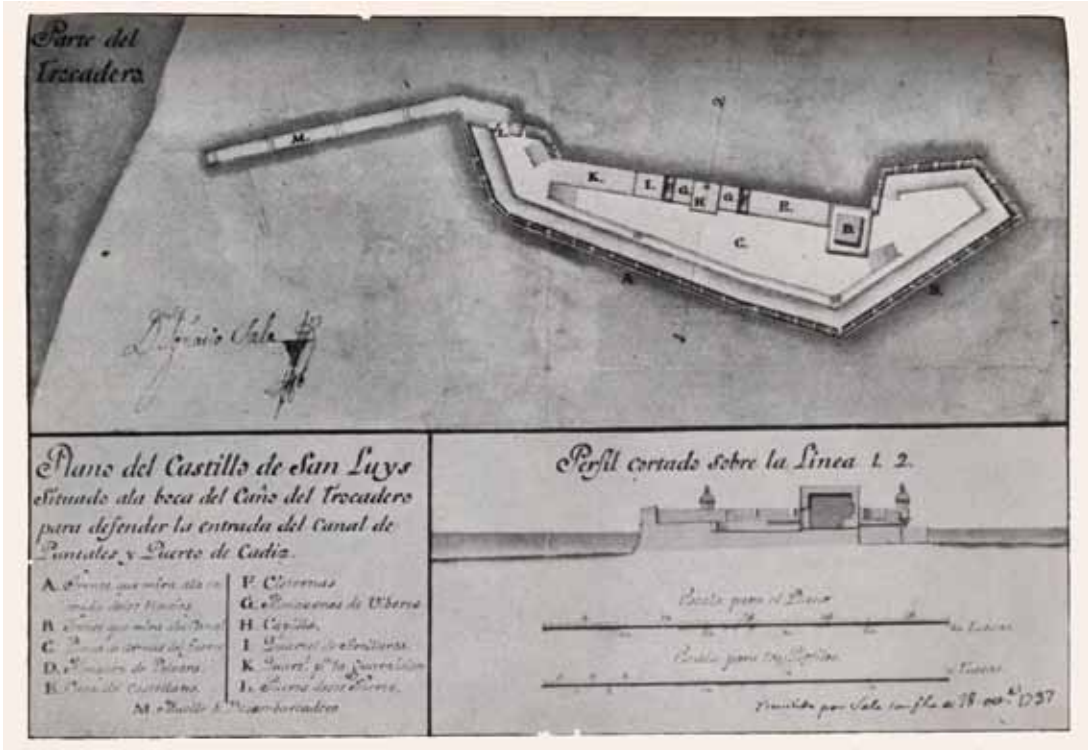 Parte del
Trocadero.
M.
L
K.
I.
G.
H
G.
E.
D.
C.
A.
B.
2
1
D.n Ignacio Sala
Plano del Castillo de San Luys
Situado ala boca del Caño del Trocadero
para defender la entrada del Canal de
Puntales y Puerto de Cadiz.
A. Frente que mira ala
B. Frente que mira al Canal
C. Plaza de Armas del Fuerte
D. Almagacen de Polvora
E. Casa del Castellano.
F. Cisternas
G. Almagacenes de Viberes
H. Capilla.
I. Quartel de Artilleros.
K. Quartel p.ª la Guarnicion
L. Puerta deste Fuerte.
M. Muelle ó Desembarcadero
Perfil cortado sobre la Linea 1. 2.
Escala para el Plano
Escala para los Perfiles.
Tuesas.
Remitido por Sala con fha de 18 1737